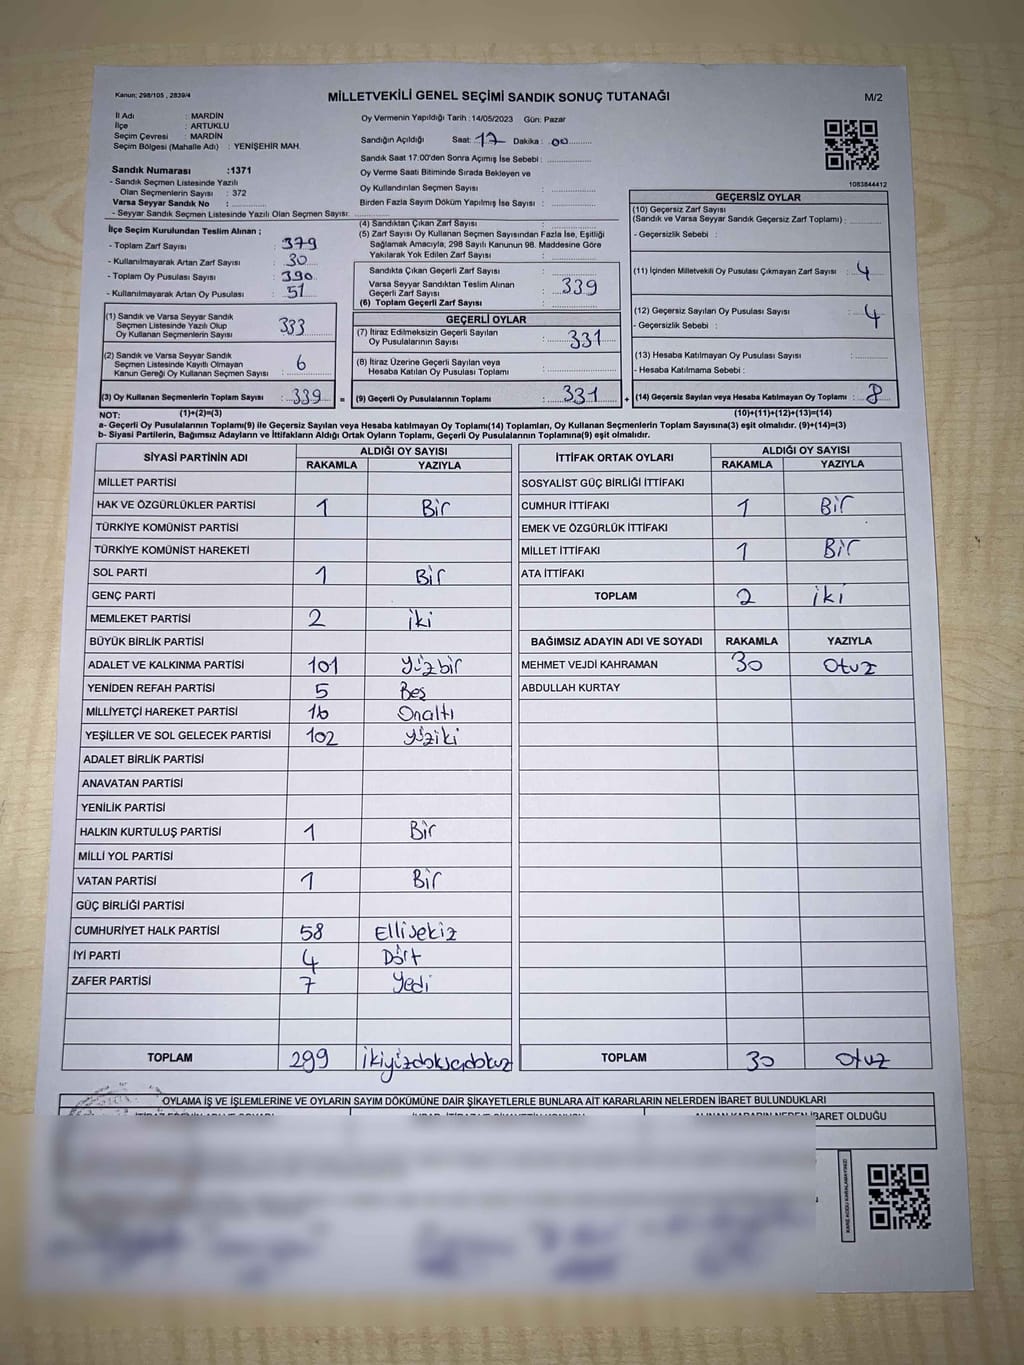 Kanun: 298/105 , 2839/4
MİLLETVEKİLİ GENEL SEÇİMİ SANDIK SONUÇ TUTANAĞI
M/2
İl Adı : MARDİN
İlçe : ARTUKLU
Seçim Çevresi : MARDİN
Seçim Bölgesi (Mahalle Adı) : YENİŞEHİR MAH.
Sandık Numarası :1371
- Sandık Seçmen Listesinde Yazılı
Olan Seçmenlerin Sayısı : 372
Varsa Seyyar Sandık No :
- Seyyar Sandık Seçmen Listesinde Yazılı Olan Seçmen Sayısı:
Oy Vermenin Yapıldığı Tarih :14/05/2023 Gün: Pazar
Sandığın Açıldığı Saat: 17 Dakika : 00
Sandık Saat 17:00'den Sonra Açımış İse Sebebi :
Oy Verme Saati Bitiminde Sırada Bekleyen ve
Oy Kullandırılan Seçmen Sayısı :
Birden Fazla Sayım Döküm Yapılmış İse Sayısı :
1083844412
İlçe Seçim Kurulundan Teslim Alınan ;
- Toplam Zarf Sayısı : 379
- Kullanılmayarak Artan Zarf Sayısı : 30
- Toplam Oy Pusulası Sayısı : 390
- Kullanılmayarak Artan Oy Pusulası : 51
(1) Sandık ve Varsa Seyyar Sandık
Seçmen Listesinde Yazılı Olup
Oy Kullanan Seçmenlerin Sayısı 333
(2) Sandık ve Varsa Seyyar Sandık
Seçmen Listesinde Kayıtlı Olmayan
Kanun Gereği Oy Kullanan Seçmen Sayısı : 6
(3) Oy Kullanan Seçmenlerin Toplam Sayısı : 339 =
(4) Sandıktan Çıkan Zarf Sayısı :
(5) Zarf Sayısı Oy Kullanan Seçmen Sayısından Fazla İse, Eşitliği
Sağlamak Amacıyla, 298 Sayılı Kanunun 98. Maddesine Göre
Yakılarak Yok Edilen Zarf Sayısı :
Sandıkta Çıkan Geçerli Zarf Sayısı :
Varsa Seyyar Sandıktan Teslim Alınan
Geçerli Zarf Sayısı : 339
(6) Toplam Geçerli Zarf Sayısı :
GEÇERLİ OYLAR
(7) İtiraz Edilmeksizin Geçerli Sayılan
Oy Pusulalarının Sayısı : 331
(8) İtiraz Üzerine Geçerli Sayılan veya
Hesaba Katılan Oy Pusulası Toplamı :
(9) Geçerli Oy Pusulalarının Toplamı : 331 +
GEÇERSİZ OYLAR
(10) Geçersiz Zarf Sayısı
(Sandık ve Varsa Seyyar Sandık Geçersiz Zarf Toplamı) :
- Geçersizlik Sebebi :
(11) İçinden Milletvekili Oy Pusulası Çıkmayan Zarf Sayısı : 4
(12) Geçersiz Sayılan Oy Pusulası Sayısı : 4
- Geçersizlik Sebebi :
(13) Hesaba Katılmayan Oy Pusulası Sayısı :
- Hesaba Katılmama Sebebi :
(14) Geçersiz Sayılan veya Hesaba Katılmayan Oy Toplamı : 8
NOT: (1)+(2)=(3) (10)+(11)+(12)+(13)=(14)
a- Geçerli Oy Pusulalarının Toplamı(9) ile Geçersiz Sayılan veya Hesaba katılmayan Oy Toplamı(14) Toplamları, Oy Kullanan Seçmenlerin Toplam Sayısına(3) eşit olmalıdır. (9)+(14)=(3)
b- Siyasi Partilerin, Bağımsız Adayların ve İttifakların Aldığı Ortak Oyların Toplamı, Geçerli Oy Pusulalarının Toplamına(9) eşit olmalıdır.
SİYASİ PARTİNİN ADI ALDIĞI OY SAYISI
RAKAMLA YAZIYLA
MİLLET PARTİSİ
HAK VE ÖZGÜRLÜKLER PARTİSİ 1 Bir
TÜRKİYE KOMÜNİST PARTİSİ
TÜRKİYE KOMÜNİST HAREKETİ
SOL PARTİ 1 Bir
GENÇ PARTİ
MEMLEKET PARTİSİ 2 iki
BÜYÜK BİRLİK PARTİSİ
ADALET VE KALKINMA PARTİSİ 101 yüzbir
YENİDEN REFAH PARTİSİ 5 Beş
MİLLİYETÇİ HAREKET PARTİSİ 16 Onaltı
YEŞİLLER VE SOL GELECEK PARTİSİ 102 yüziki
ADALET BİRLİK PARTİSİ
ANAVATAN PARTİSİ
YENİLİK PARTİSİ
HALKIN KURTULUŞ PARTİSİ 1 Bir
MİLLİ YOL PARTİSİ
VATAN PARTİSİ 1 Bir
GÜÇ BİRLİĞİ PARTİSİ
CUMHURİYET HALK PARTİSİ 58 Ellisekiz
İYİ PARTİ 4 Dört
ZAFER PARTİSİ 7 Yedi
TOPLAM 299 ikiyüzdoksandokuz
İTTİFAK ORTAK OYLARI ALDIĞI OY SAYISI
RAKAMLA YAZIYLA
SOSYALİST GÜÇ BİRLİĞİ İTTİFAKI
CUMHUR İTTİFAKI 1 Bir
EMEK VE ÖZGÜRLÜK İTTİFAKI
MİLLET İTTİFAKI 1 Bir
ATA İTTİFAKI
TOPLAM 2 iki
BAĞIMSIZ ADAYIN ADI VE SOYADI RAKAMLA YAZIYLA
MEHMET VEJDİ KAHRAMAN 30 Otuz
ABDULLAH KURTAY
TOPLAM 30 Otuz
OYLAMA İŞ VE İŞLEMLERİNE VE OYLARIN SAYIM DÖKÜMÜNE DAİR ŞİKAYETLERLE BUNLARA AİT KARARLARIN NELERDEN İBARET BULUNDUKLARI
ALINAN KARARIN NEDEN İBARET OLDUĞU